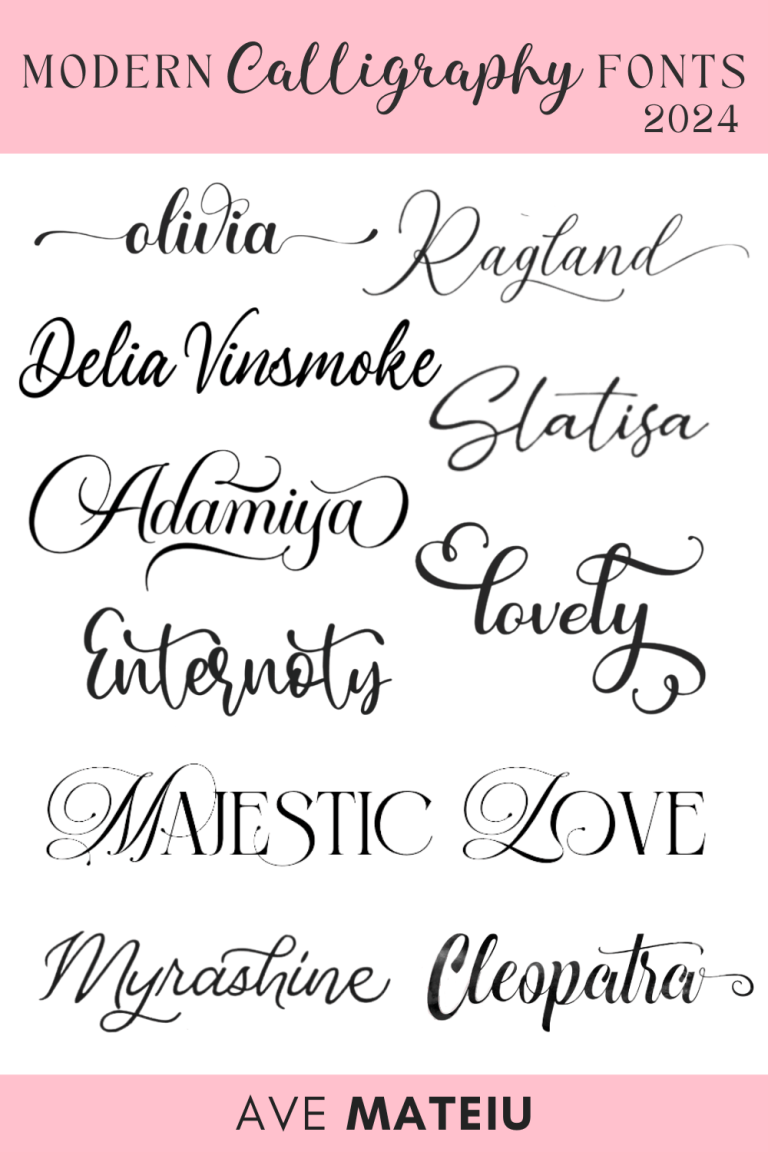 MODERN Calligraphy FONTS
2024
olivia
Ragland
Delia Vinsmoke
Slatisa
Adamiya
lovely
Enternoty
MAJESTIC LOVE
Myrashine
Cleopatra
AVE MATEIU